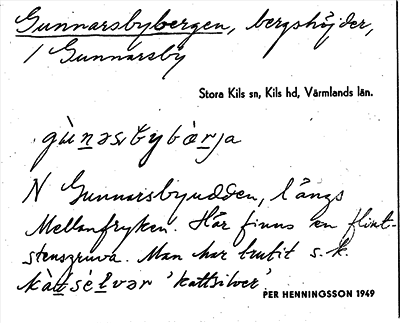 Gunnarsbybergen, bergshöjder,
/ Gunnarsby
Stora Kils sn, Kils hd, Värmlands län.
gùnəsbybàrja
N Gunnarsbyudden, längs
Mellanfryken. Här finns en flint-
stensgruva. Man har brutit s.k.
kàtsélvər 'kattsilver'.
PER HENNINGSSON 1949